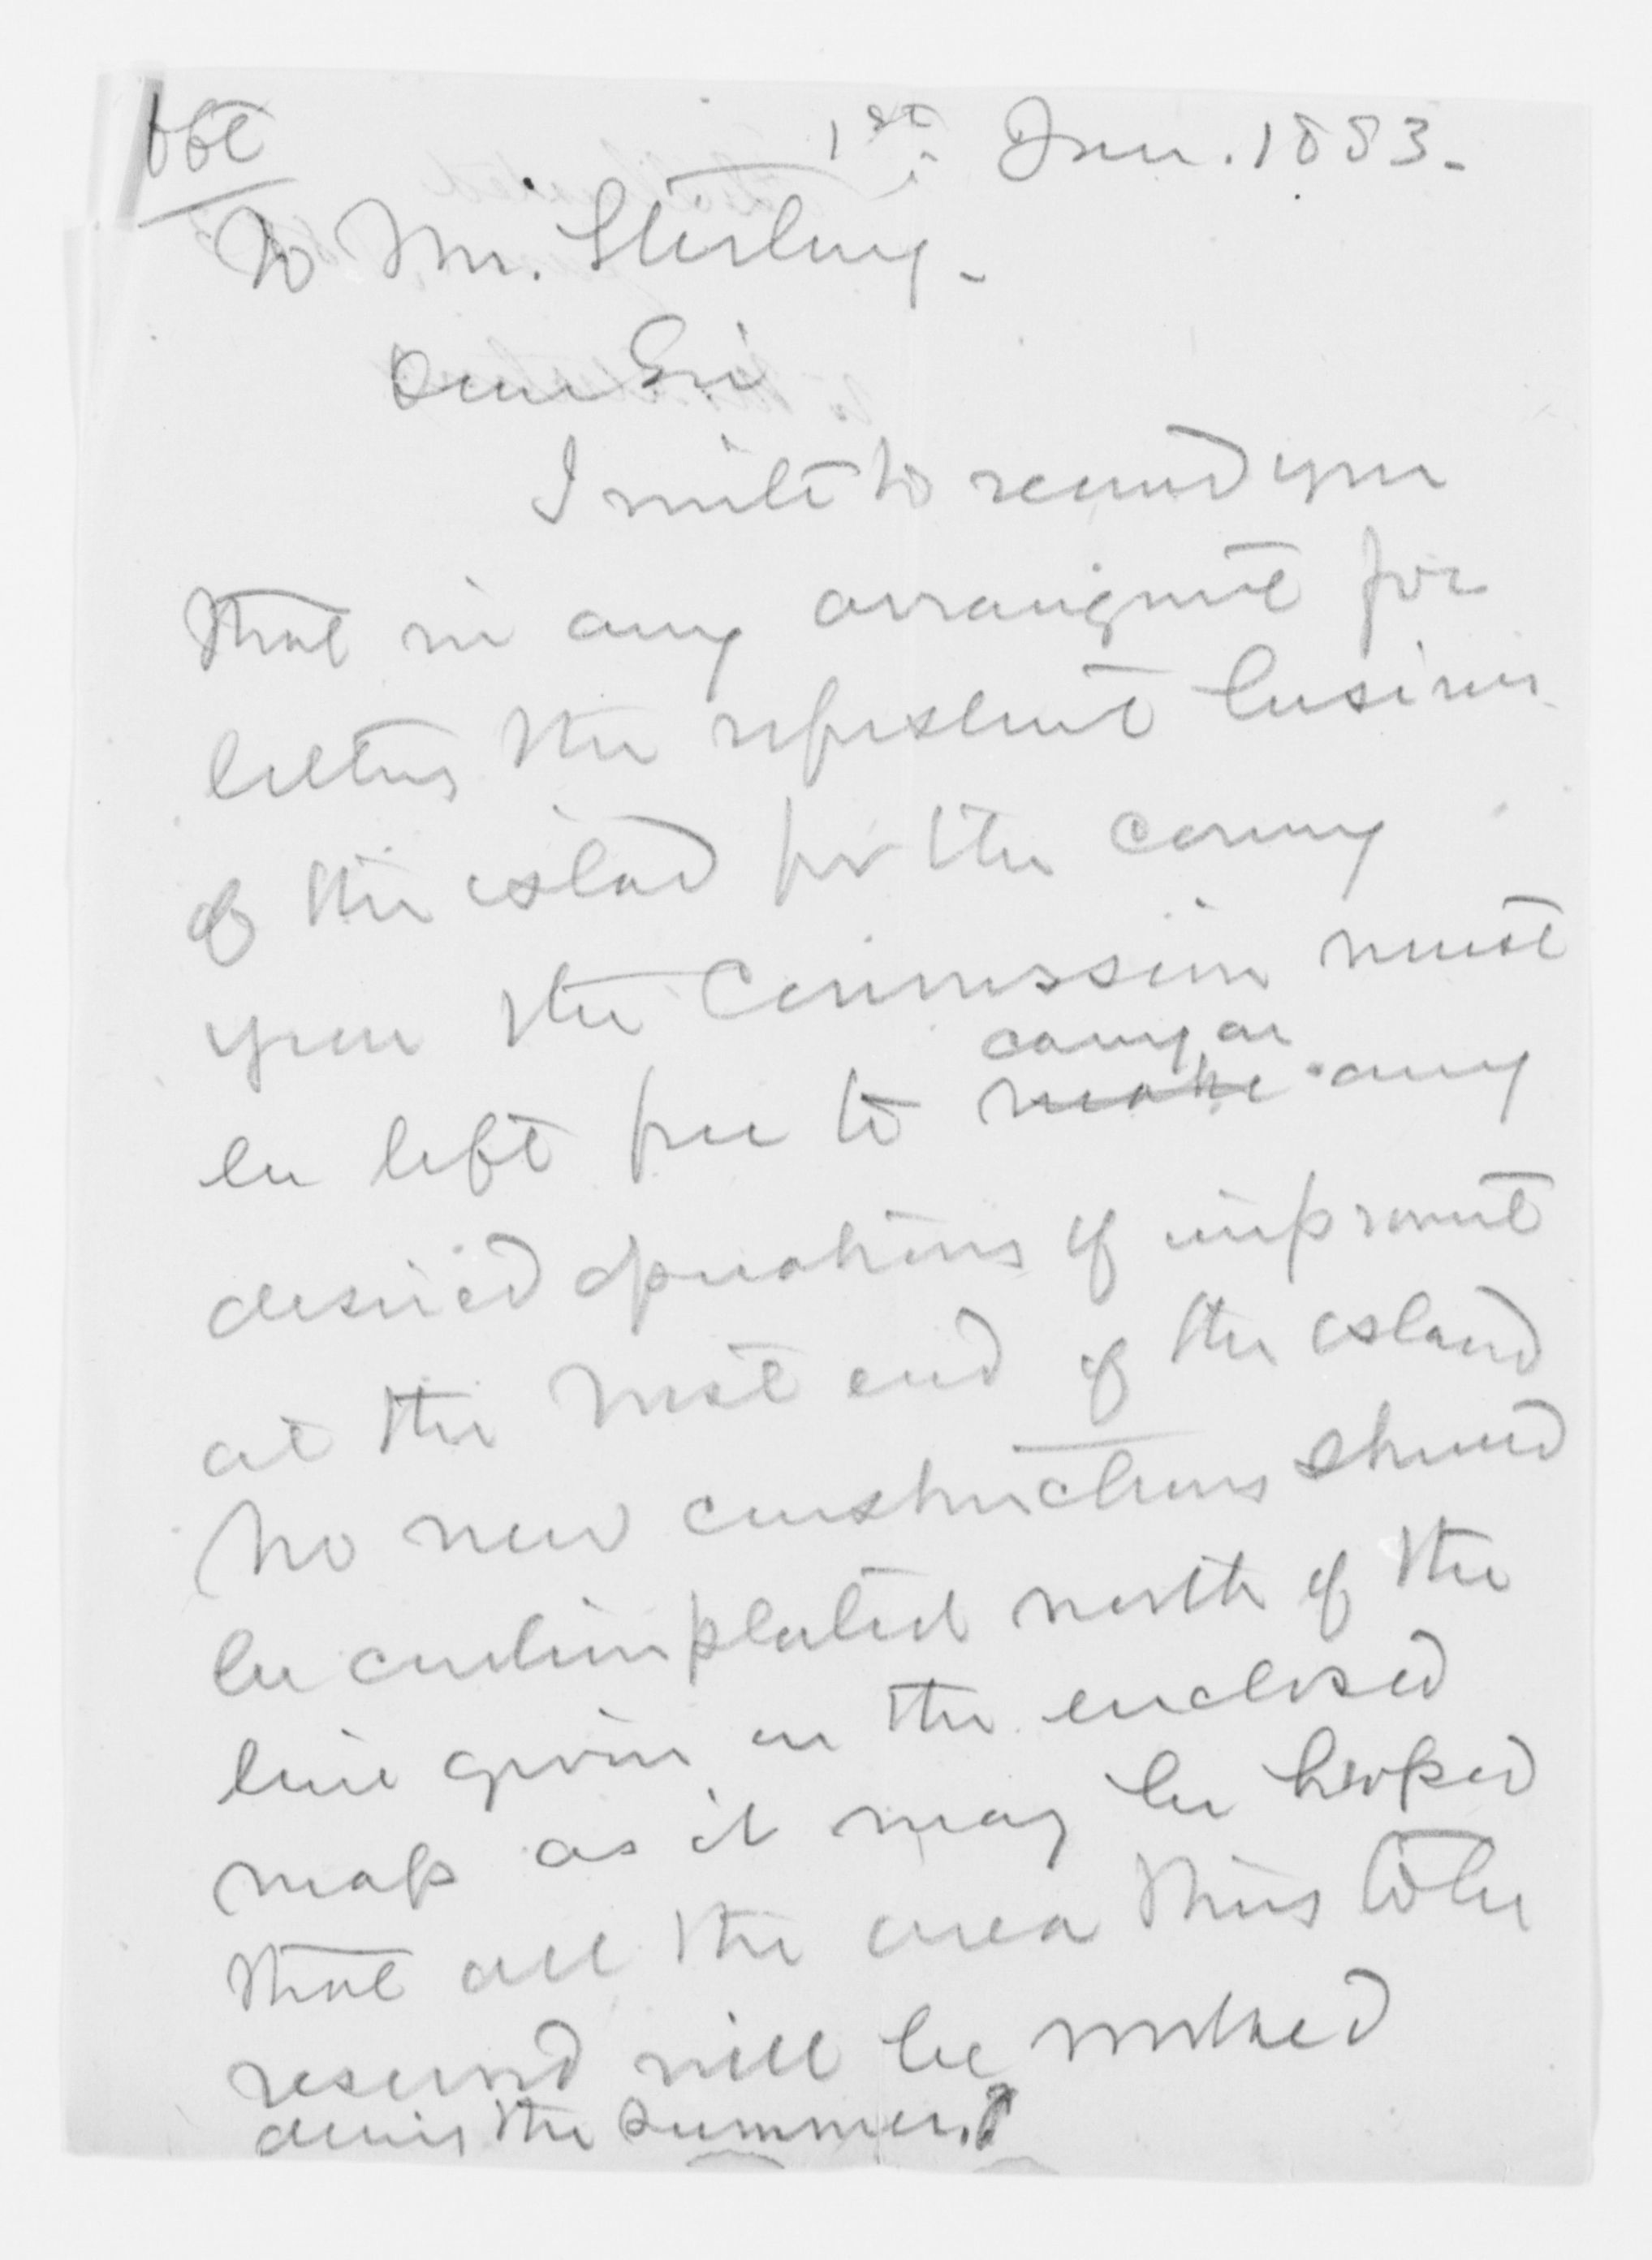 1st Jan. 1883.
To Mr. Sterling.
Dear Sir
I write to remind you
that in any arrangmt for
letting the refreshmt business
of the island for the coming
year the Commission must
carry on
be left free to make any
desired operations of improvmt
at the West end of the island
No new constructions should
be contemplated north of the
line given on the enclosed
map as it may be hoped
that all the area thus to be
reserved will be worked
during the summer.